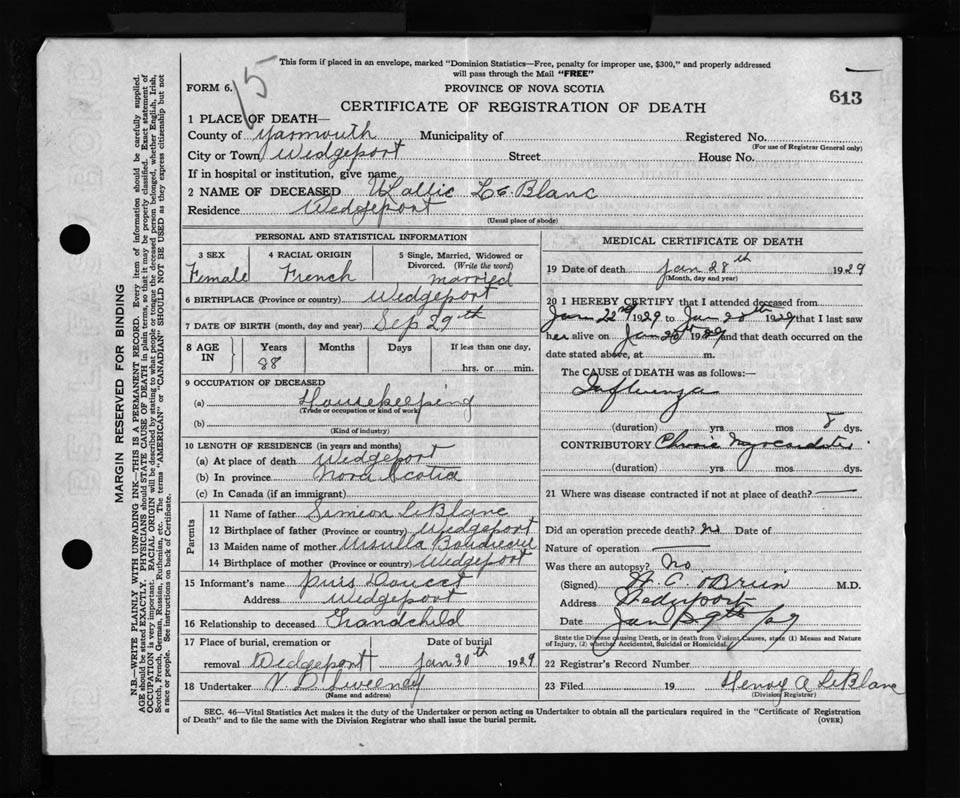 This form if placed in an envelope, marked "Dominion Statistics—Free, penalty for improper use, $300," and properly addressed
will pass through the Mail "FREE"
FORM 6.
15
PROVINCE OF NOVA SCOTIA
613
CERTIFICATE OF REGISTRATION OF DEATH
1 PLACE OF DEATH—
County of Yarmouth Municipality of Registered No.
(For use of Registrar General only)
City or Town Wedgeport Street House No.
If in hospital or institution, give name
2 NAME OF DECEASED LeBlanc
Residence Wedgeport
(Usual place of abode)
PERSONAL AND STATISTICAL INFORMATION
3 SEX 4 RACIAL ORIGIN 5 Single, Married, Widowed or
Divorced. (Write the word)
Female French married
6 BIRTHPLACE (Province or country) Wedgeport
7 DATE OF BIRTH (month, day and year) Sep 29th
8 AGE IN Years Months Days If less than one day,
88 hrs. or min.
9 OCCUPATION OF DECEASED
(a) Housekeeping
(Trade or occupation or kind of work)
(b)
(Kind of industry)
10 LENGTH OF RESIDENCE (in years and months)
(a) At place of death Wedgeport
(b) In province Nova Scotia
(c) In Canada (if an immigrant)
Parents
11 Name of father Simeon LeBlanc
12 Birthplace of father (Province or country) Wedgeport
13 Maiden name of mother Ursulla Boudreau
14 Birthplace of mother (Province or country) Wedgeport
15 Informant's name Doucet
Address Wedgeport
16 Relationship to deceased Grandchild
17 Place of burial, cremation or Date of burial
removal Wedgeport Jan 30th 1929
18 Undertaker V D Sweeney
(Name and address)
MEDICAL CERTIFICATE OF DEATH
19 Date of death Jan 28th 1929
(Month, day and year)
20 I HEREBY CERTIFY that I attended deceased from
Jan 22nd 1929 to Jan 28th 1929 that I last saw
her alive on Jan 1929 and that death occurred on the
date stated above, at m.
The CAUSE of DEATH was as follows:—
Influenza
(duration) yrs mos 8 dys.
CONTRIBUTORY Chronic Myocarditis
(duration) yrs. mos dys.
21 Where was disease contracted if not at place of death?
Did an operation precede death? no Date of
Nature of operation
Was there an autopsy? No
(Signed) H. C. O'Brien M.D.
Address Wedgeport
Date Jan 29th/29
State the Disease causing Death, or in death from Violent Causes, state (1) Means and Nature
of Injury, (2) whether Accidental, Suicidal or Homicidal.
22 Registrar's Record Number
23 Filed 19 Henry A LeBlanc
(Division Registrar)
SEC. 46—Vital Statistics Act makes it the duty of the Undertaker or person acting as Undertaker to obtain all the particulars required in the "Certificate of Registration
of Death" and to file the same with the Division Registrar who shall issue the burial permit.
(OVER)
MARGIN RESERVED FOR BINDING
N.B.—WRITE PLAINLY WITH UNFADING INK—THIS IS A PERMANENT RECORD. Every item of information should be carefully supplied.
AGE should be stated EXACTLY. PHYSICIANS should STATE CAUSE OF DEATH in plain terms, so that it may be properly classified. Exact statement of
OCCUPATION is very important. RACIAL ORIGIN will be described by stating to what people or tongue the deceased person belonged, whether English, Irish,
Scotch, French, German, Russian, Ruthenian, etc. The terms "AMERICAN" or "CANADIAN" SHOULD NOT BE USED as they express citizenship but not
a race or people. See instructions on back of Certificate.